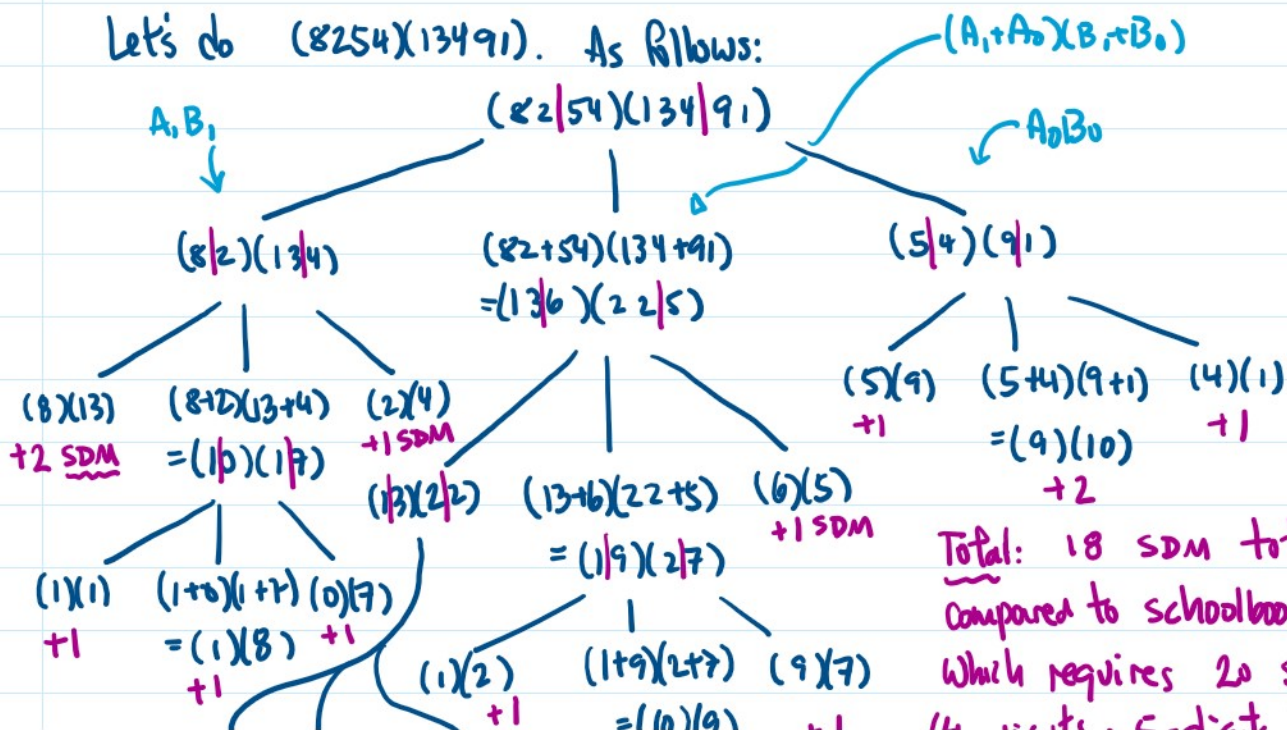 Let's do (8254)(13491). As follows:
(A₁+A₀)(B₁+B₀)
(82|54)(134|91)
A₁B₁
A₀B₀
(8|2)(13|4)
(82+54)(134+91)
=(13|6)(22|5)
(5|4)(9|1)
(8)(13)
+2 SDM
(8+2)(13+4)
=(1|0)(1|7)
(2)(4)
+1 SDM
(5)(9)
+1
(5+4)(9+1)
=(9)(10)
+2
(4)(1)
+1
(1|3)(2|2)
(13+6)(22+5)
=(1|9)(2|7)
(6)(5)
+1 SDM
(1)(1)
+1
(1+0)(1+7)
=(1)(8)
+1
(0)(7)
+1
(1)(2)
+1
(1+9)(2+7)
=(10)(9)
(9)(7)
Total: 18 SDM
compared to
which requires 20